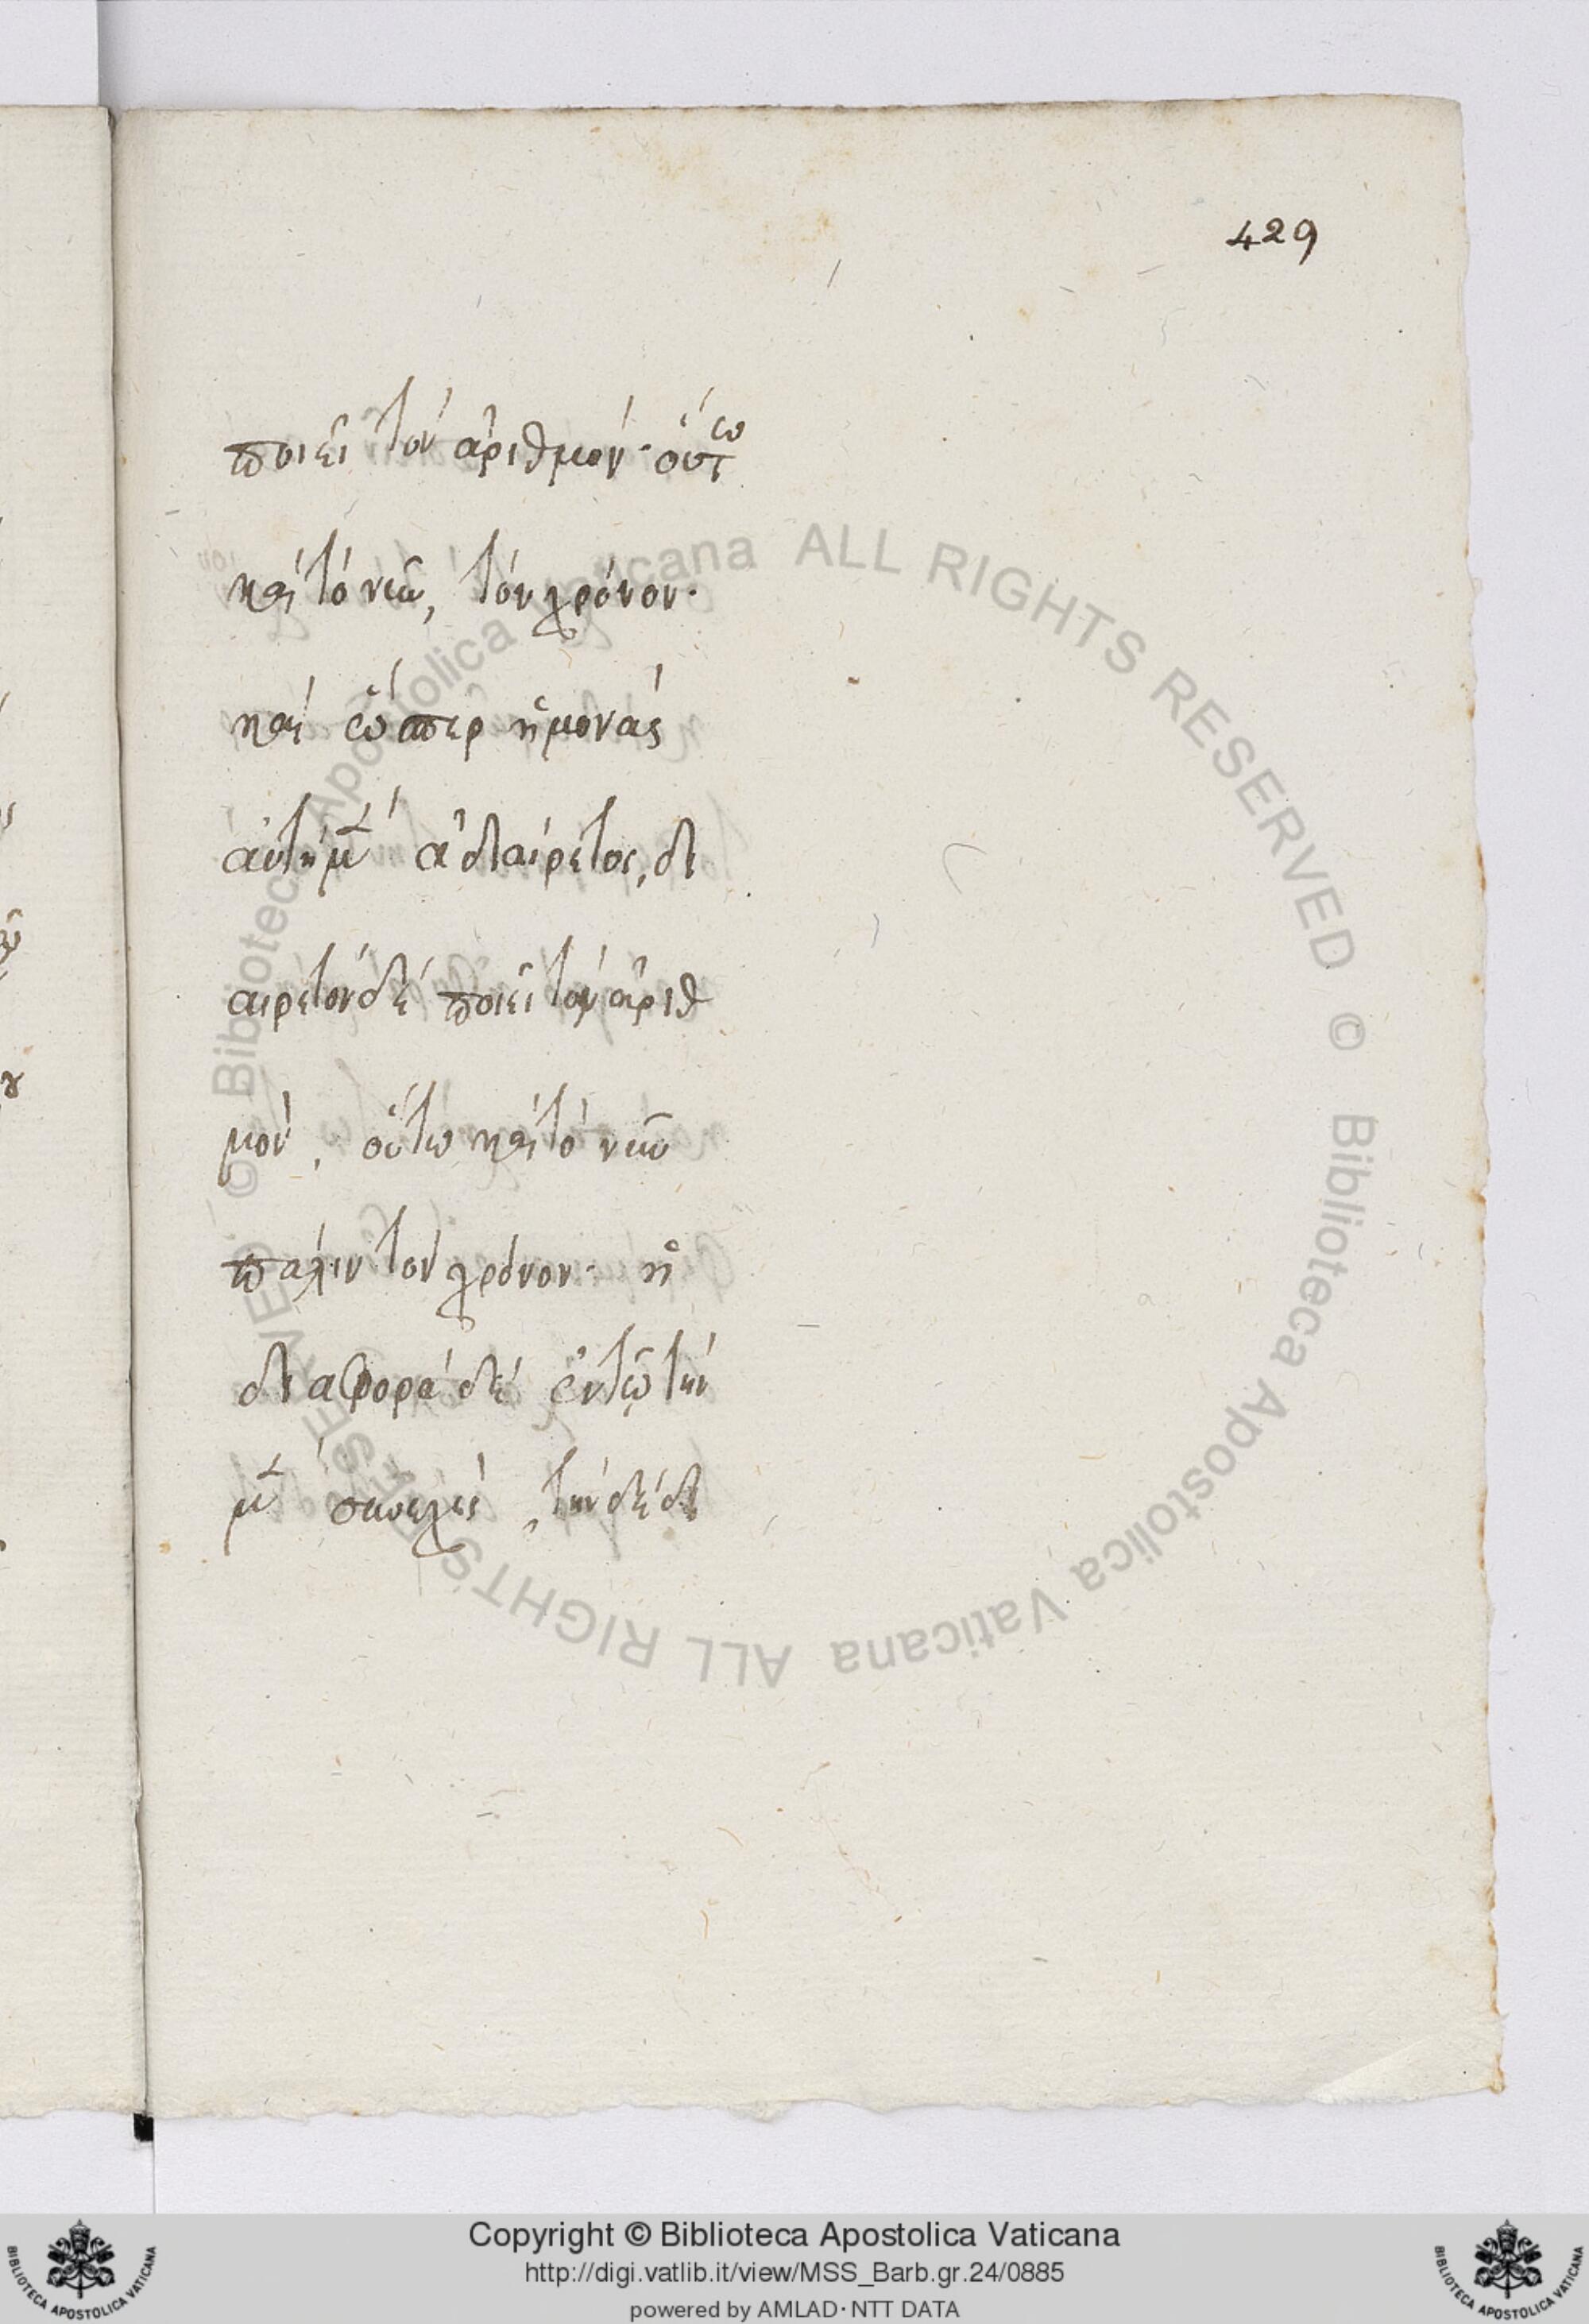 429
ποιεῖ τὸν ἀριθμόν· οὕτω
καὶ τὸ νῦν, τὸν χρόνον·
καὶ ὥσπερ ἡ μονὰς
αὐτὴ μὲν ἀδιαίρετος, δι
αιρετὸν δὲ ποιεῖ τὸν ἀριθ
μόν, οὕτω καὶ τὸ νῦν
πάλιν τὸν χρόνον· ἡ
διαφορὰ δὲ ἐν τῷ τὴν
μὲν συνεχεῖ, τὴν δὲ δι
Copyright © Biblioteca Apostolica Vaticana
http://digi.vatlib.it/view/MSS_Barb.gr.24/0885
powered by AMLAD · NTT DATA
© Biblioteca Apostolica Vaticana ALL RIGHTS RESERVED
© Biblioteca Apostolica Vaticana ALL RIGHTS RESERVED
BIBLIOTECA APOSTOLICA VATICANA
BIBLIOTECA APOSTOLICA VATICANA